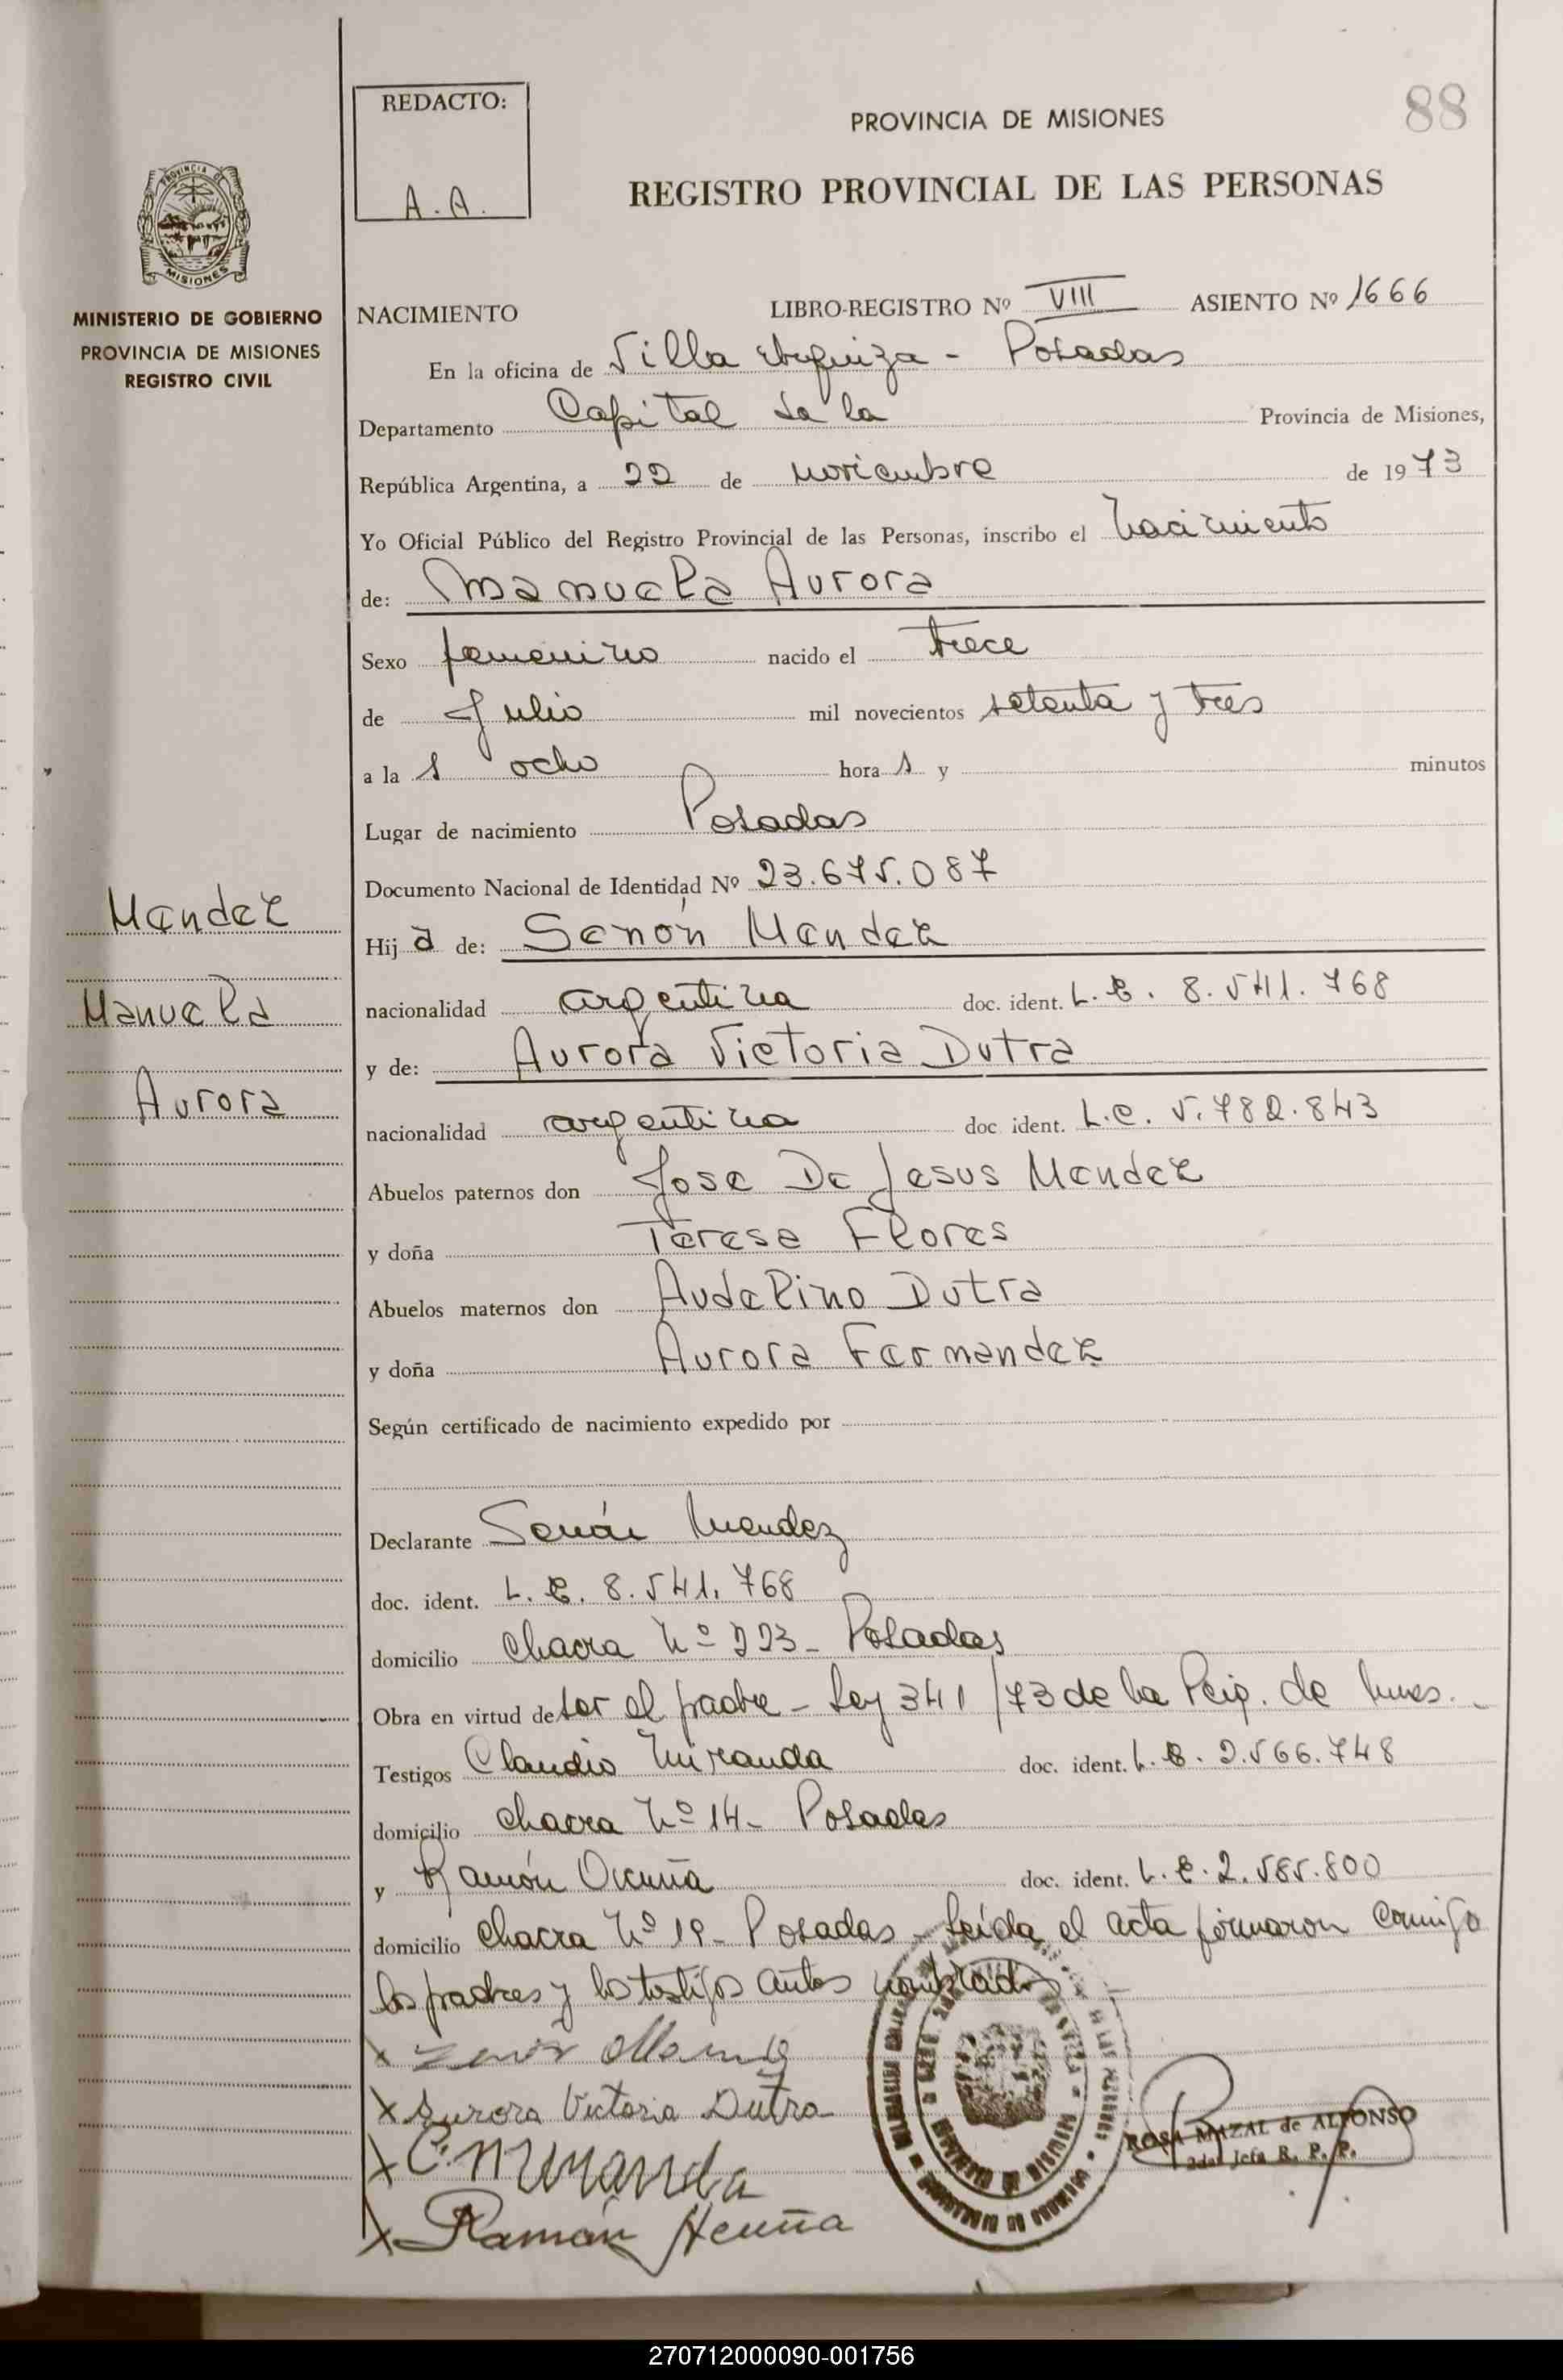 REDACTO:
A.A.
88
PROVINCIA DE MISIONES
REGISTRO PROVINCIAL DE LAS PERSONAS
PROVINCIA DE
MISIONES
MINISTERIO DE GOBIERNO
PROVINCIA DE MISIONES
REGISTRO CIVIL
NACIMIENTO LIBRO-REGISTRO Nº VIII ASIENTO Nº 1666
En la oficina de Villa Urquiza - Posadas
Departamento Capital de la Provincia de Misiones,
República Argentina, a 22 de noviembre de 1973
Yo Oficial Público del Registro Provincial de las Personas, inscribo el nacimiento
de: Manuela Aurora
Sexo femenino nacido el trece
de Julio mil novecientos setenta y tres
a la s ocho hora s y minutos
Lugar de nacimiento Posadas
Documento Nacional de Identidad Nº 23.675.087
Mendez
Manuela
Aurora
Hij a de: Senón Mendez
nacionalidad argentina doc. ident. L.E. 8.541.768
y de: Aurora Victoria Dutra
nacionalidad argentina doc. ident. L.C. 5.782.843
Abuelos paternos don Jose De Jesus Mendez
y doña Teresa Flores
Abuelos maternos don Audelino Dutra
y doña Aurora Fernandez
Según certificado de nacimiento expedido por
Declarante Senón Mendez
doc. ident. L.E. 8.541.768
domicilio chacra Nº 223 - Posadas
Obra en virtud de ser el padre - Ley 341/73 de la Pcia. de Mnes. -
Testigos Claudio Miranda doc. ident. L.E. 2.566.748
domicilio chacra Nº 14 - Posadas
y Ramón Acuña doc. ident. L.E. 2.585.800
domicilio chacra Nº 19 - Posadas - Leída el acta firmaron conmigo
los padres y los testigos antes nombrados
x
x Aurora Victoria Dutra
x C. Miranda
x Ramón Acuña
ROSA MAZAL de ALFONSO
2da. Jefa R. P. P.
270712000090-001756